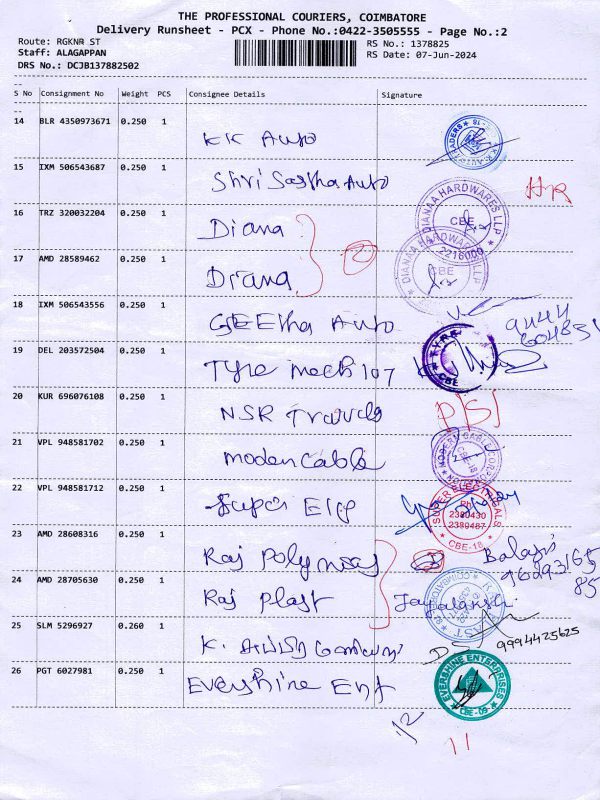 THE PROFESSIONAL COURIERS, COIMBATORE
Delivery Runsheet - PCX - Phone No.:0422-3505555 - Page No.:2
Route: RGKNR ST
RS No.: 1378825
Staff: ALAGAPPAN
RS Date: 07-Jun-2024
DRS No.: DCJB137882502
S No Consignment No Weight PCS Consignee Details Signature
14 BLR 4350973671 0.250 1 KK Auto
15 IXM 506543687 0.250 1 Shri Sastha Auto
16 TRZ 320032204 0.250 1 Diana
DIANAA HARDWARES LLP
CBE
17 AMD 28589462 0.250 1 Diana 2
DIANAA HARDWARES LLP
2216000
CBE
18 IXM 506543556 0.250 1 GEEtha Auto
19 DEL 203572504 0.250 1 Tyre mech 107
CBE
20 KUR 696076108 0.250 1 NSR Travels D/S
21 VPL 948581702 0.250 1 moden cable
22 VPL 948581712 0.250 1 Super Ele
SUPER ELECTRICALS
Ph:
2380430
2380487
CBE-18
23 AMD 28608316 0.250 1 Raj Polymers 2 Balaji
24 AMD 28705630 0.250 1 Raj Plast
25 SLM 5296927 0.260 1 K. 9994425625
26 PGT 6027981 0.250 1 Evershine Ent
EVERSHINE ENTERPRISES
CBE-09
12
11